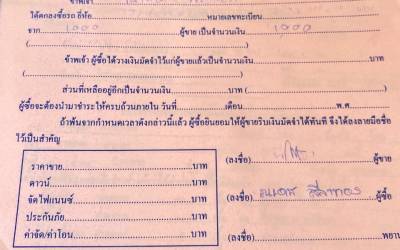 ข้าพเจ้า
ได้ตกลงซื้อรถ ยี่ห้อ........................หมายเลขทะเบียน........................
จาก 1,000 ผู้ขาย เป็นจำนวนเงิน 1,000
(........................)(........................)
ข้าพเจ้า ผู้ซื้อได้วางเงินมัดจำไว้แก่ผู้ขายแล้วเป็นจำนวนเงิน........................บาท
(........................)
ส่วนที่เหลืออยู่อีกเป็นจำนวนเงิน........................บาท (........................)
ผู้ซื้อจะต้องนำมาชำระให้ครบถ้วนภายใน วันที่........................เดือน........................พ.ศ.........................
ถ้าพ้นจากกำหนดเวลาดังกล่าวนี้แล้ว ผู้ซื้อยินยอมให้ผู้ขายริบเงินมัดจำได้ทันที จึงได้ลงลายมือชื่อ
ไว้เป็นสำคัญ
ราคาขาย........................บาท
ดาวน์........................บาท
จัดไฟแนนซ์........................บาท
ประกันภัย........................บาท
ค่าจัด/ค่าโอน........................บาท
(ลงชื่อ)........................ผู้ขาย
(ลงชื่อ)........................ผู้ซื้อ
(ลงชื่อ)........................พยาน